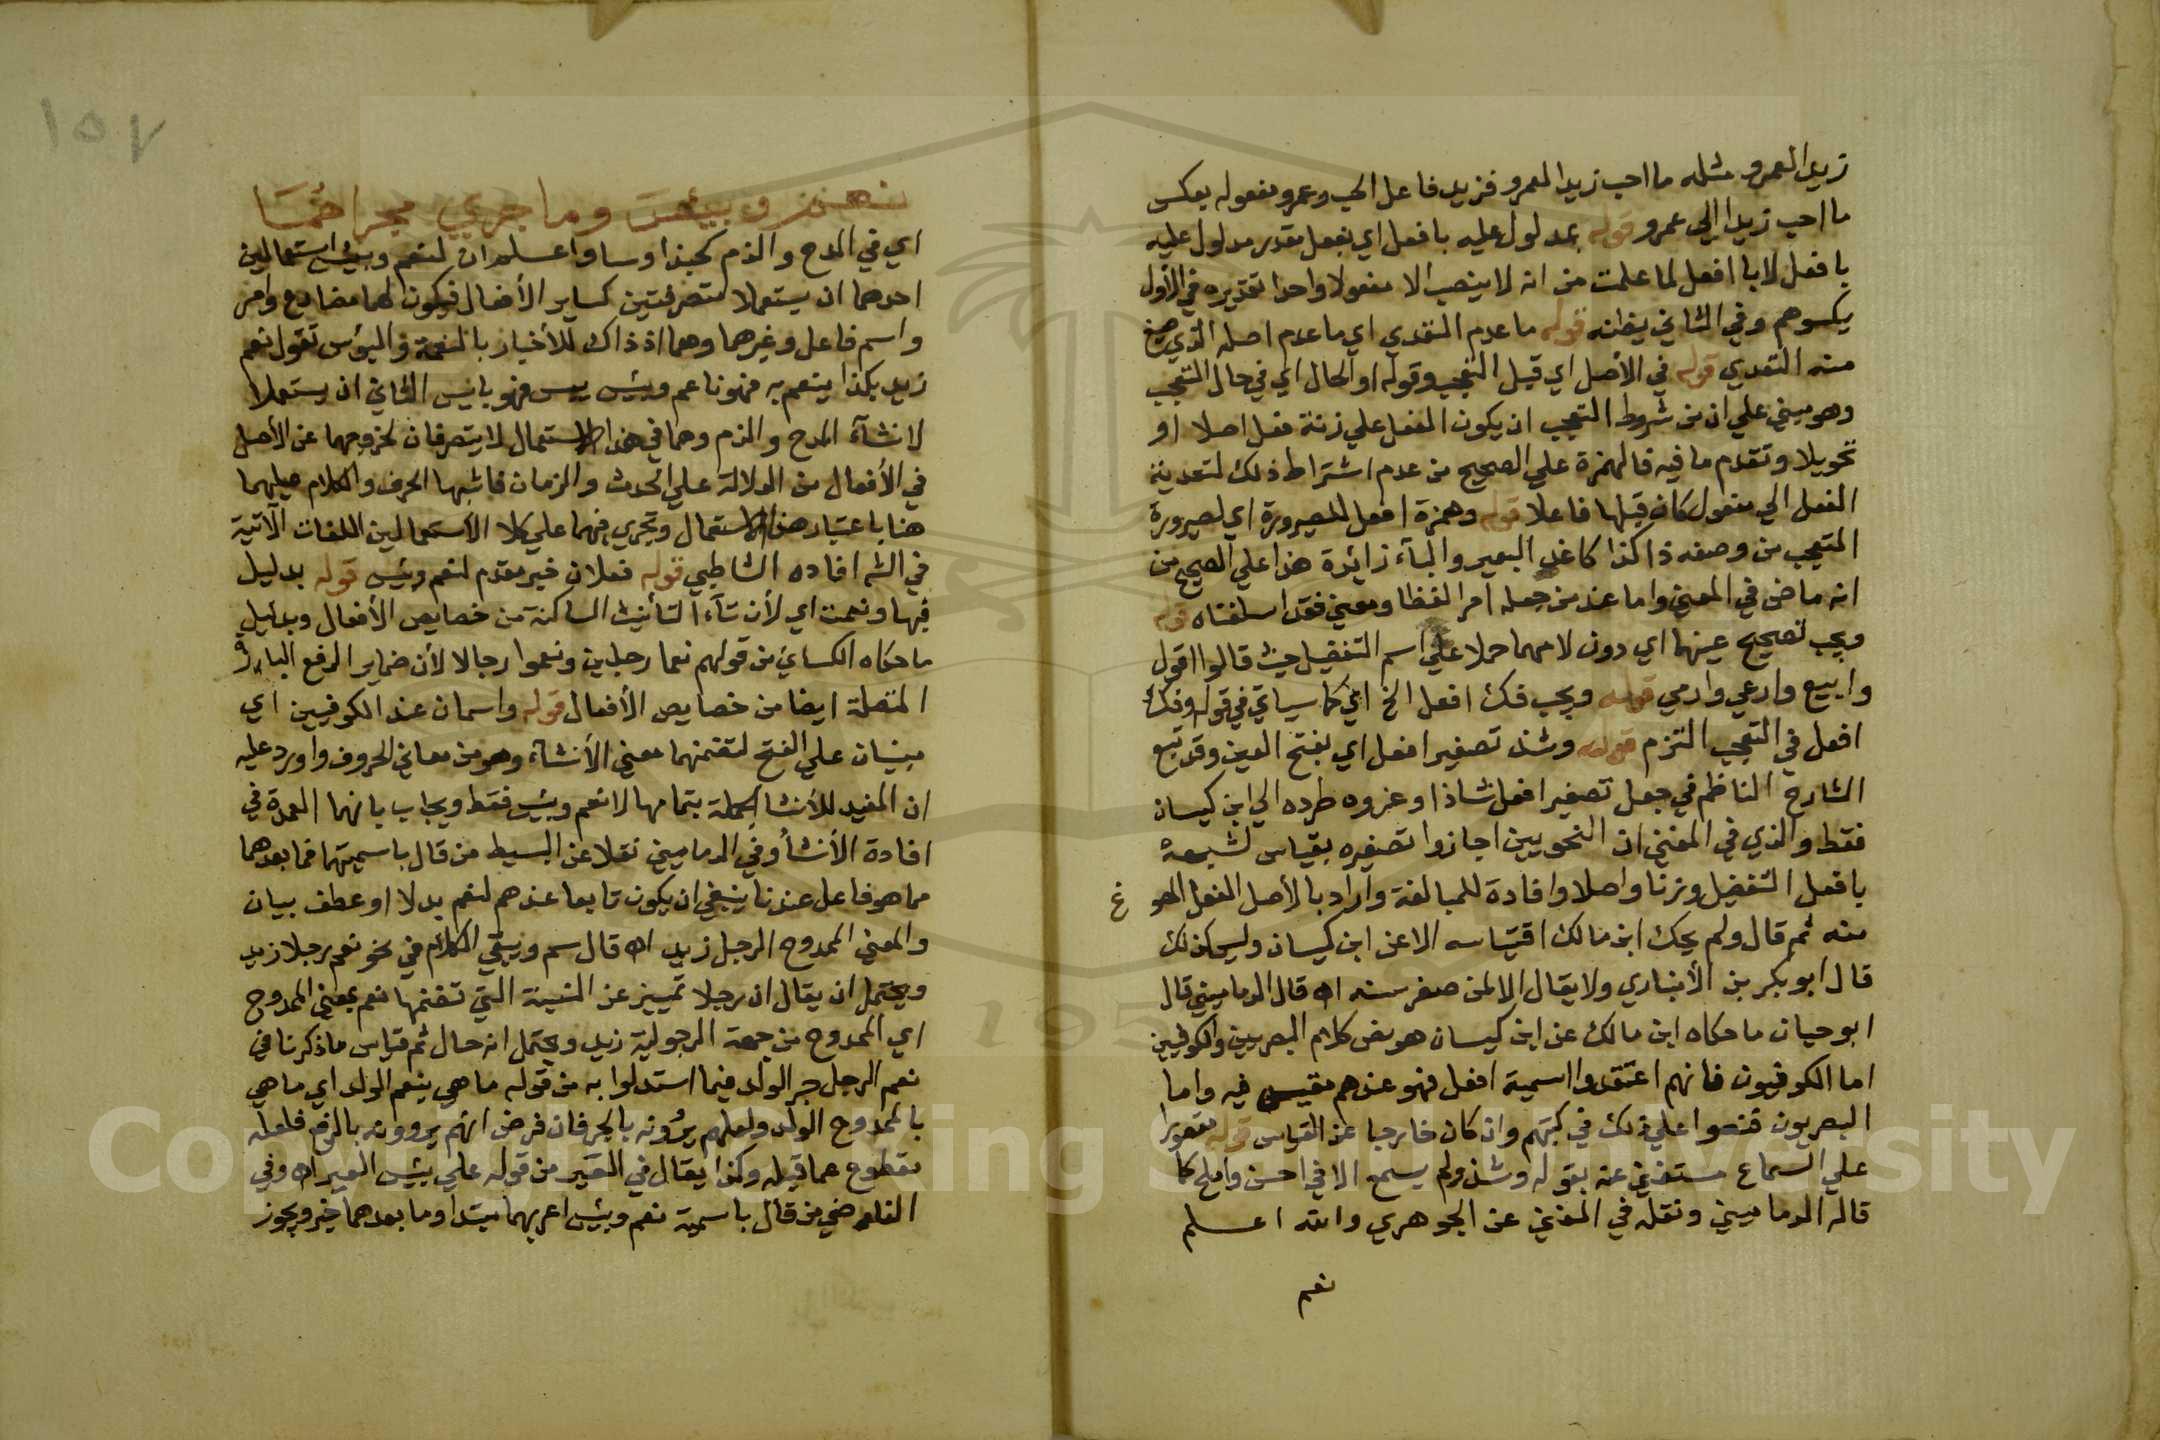 زيدا لعمرو مثله ما احب زيدا لعمرو فزيد فاعل الحب وعمرو مفعوله بعكس
ما احب زيدا الى عمرو قوله بمدلول عليه بافعل اي بفعل مقدر مدلول عليه
بافعل لا بافعل لما علمت من انه لا ينصب الا مفعولا واحدا تقديره في الأول
يكسوهم وفي الثاني يظنه قوله ما عدم التعدي اي ما عدم اصله الذي صيغ
منه التعدي قوله في الأصل اي قبل التعجب وقوله او الحال اي في حال التعجب
وهو مبني علي ان من شروط التعجب ان يكون الفعل علي زنة فعل اصلا او
تحويلا وتقدم ما فيه فالهمزة علي الصحيح من عدم اشتراط ذلك لتعدية
الفعل الي مفعول كان قبلها فاعلا قوله وهمزة افعل للصيرورة اي لصيرورة
المتعجب من وصفه ذا كذا كاغد البعير والبآء زائدة هذا علي الصحيح من
انه ماض في المعني واما عند من جعله امرا لفظا ومعني فقد اسلفناه قوله
ويجب تصحيح عينهما اي دون لامهما حملا علي اسم التفضيل حيث قالوا اقول
وابيع وارعي وارمي قوله ويجب فك افعل الخ اي كما سياتي في قوله وفك
افعل في التعجب التزم قوله وشذ تصغير افعل اي بفتح العين وقد تبع
الشارح الناظم في جعل تصغير افعل شاذا وعزوه طرده الي ابن كيسان
فقط والذي في المغني ان النحويين اجازوا تصغيره بقياس لشبهه
بافعل التفضيل وزنا واصلا وافادة للمبالغة واراد بالأصل الفعل
غ
منه ثم قال ولم يحك ابن مالك اقتياسه الا عن ابن كيسان وليس كذلك
قال ابو بكر بن الأنباري ولا يقال الا لمن صغر سنه اه قال الدماميني قال
ابو حيان ما حكاه ابن مالك عن ابن كيسان هو نص كلام البصريين والكوفيين
اما الكوفيون فانهم اعتقدوا اسمية افعل فهو عندهم مقيس فيه واما
البصريون فنصوا علي ذلك في كتبهم وان كان خارجا عن القياس قوله مقصورا
علي السماع مستغني عنه بقوله وشذ ولم يسمع الا في احسن واملح كما
قاله الدماميني ونقله في المغني عن الجوهري والله اعلم
نعم
١٥٧
نعم وبئس وما جري مجراهما
اي في المدح والذم كحبذا وسا واعلم ان لنعم وبئس استعمالين
احدهما ان يستعملا متصرفتين كساير الأفعال فيكون لهما مضارع وامر
واسم فاعل وغيرها وهما اذ ذاك للأخبار بالنعمة والبؤس تقول نعم
زيد بكذا ينعم به فهو ناعم وبئس يبس فهو بائس الثاني ان يستعملا
لانشآء المدح والذم وهما في هذا الاستعمال لا يتصرفان لخروجهما عن الأصل
في الأفعال من الدلالة علي الحدث والزمان فاشبها الحرف والكلام عليهما
هنا باعتبار هذا الاستعمال وتجري فيهما علي كلا الأستعمالين اللغات الآتية
في الشه افاده الشاطبي قوله فعلان خبر مقدم لنعم وبئس قوله بدليل
فبها ونعمت اي لأن تآء التأنيث الساكنة من خصايص الأفعال وبدليل
ما حكاه الكسائي من قولهم نعما رجلين ونعموا رجالا لأن ضماير الرفع البارزة
المتصلة ايضا من خصايص الأفعال قوله واسمان عند الكوفيين اي
مبنيان علي الفتح لتضمنهما معني الأنشآء وهو من معاني الحروف واورد عليه
ان المفيد للأنشا الجملة بتمامها لا نعم وبئس فقط ويجاب بانهما العمدة في
افادة الأنشأ وفي الدماميني نقلا عن البسيط من قال باسميتهما فما بعدهما
مما هو فاعل عندنا ينبغي ان يكون تابعا عندهم لنعم بدلا او عطف بيان
والمعني الممدوح الرجل زيد اه قال سم ويبقي الكلام في نحو نعم رجلا زيد
ويحتمل ان يقال ان رجلا تمييز عن النسبة التي تضمنها نعم بمعني الممدوح
اي الممدوح من جهة الرجولية زيد ويحتمل انه حال ثم قياس ما ذكرنا في
نعم الرجل جر الولد فيما استدلوا به من قوله ما هي بنعم الولد اي ما هي
بالممدوح الولد ولعلهم يرونه بالجر فان فرض انهم يروونه بالرفع فلعله
مقطوع عما قبله وكذا يقال في العير من قوله علي بئس العير اه وفي
الفارضي من قال باسمية نعم وبئس اعربهما مبتدا وما بعدهما خبر ويجوز
Copyright © King Saud University
1957